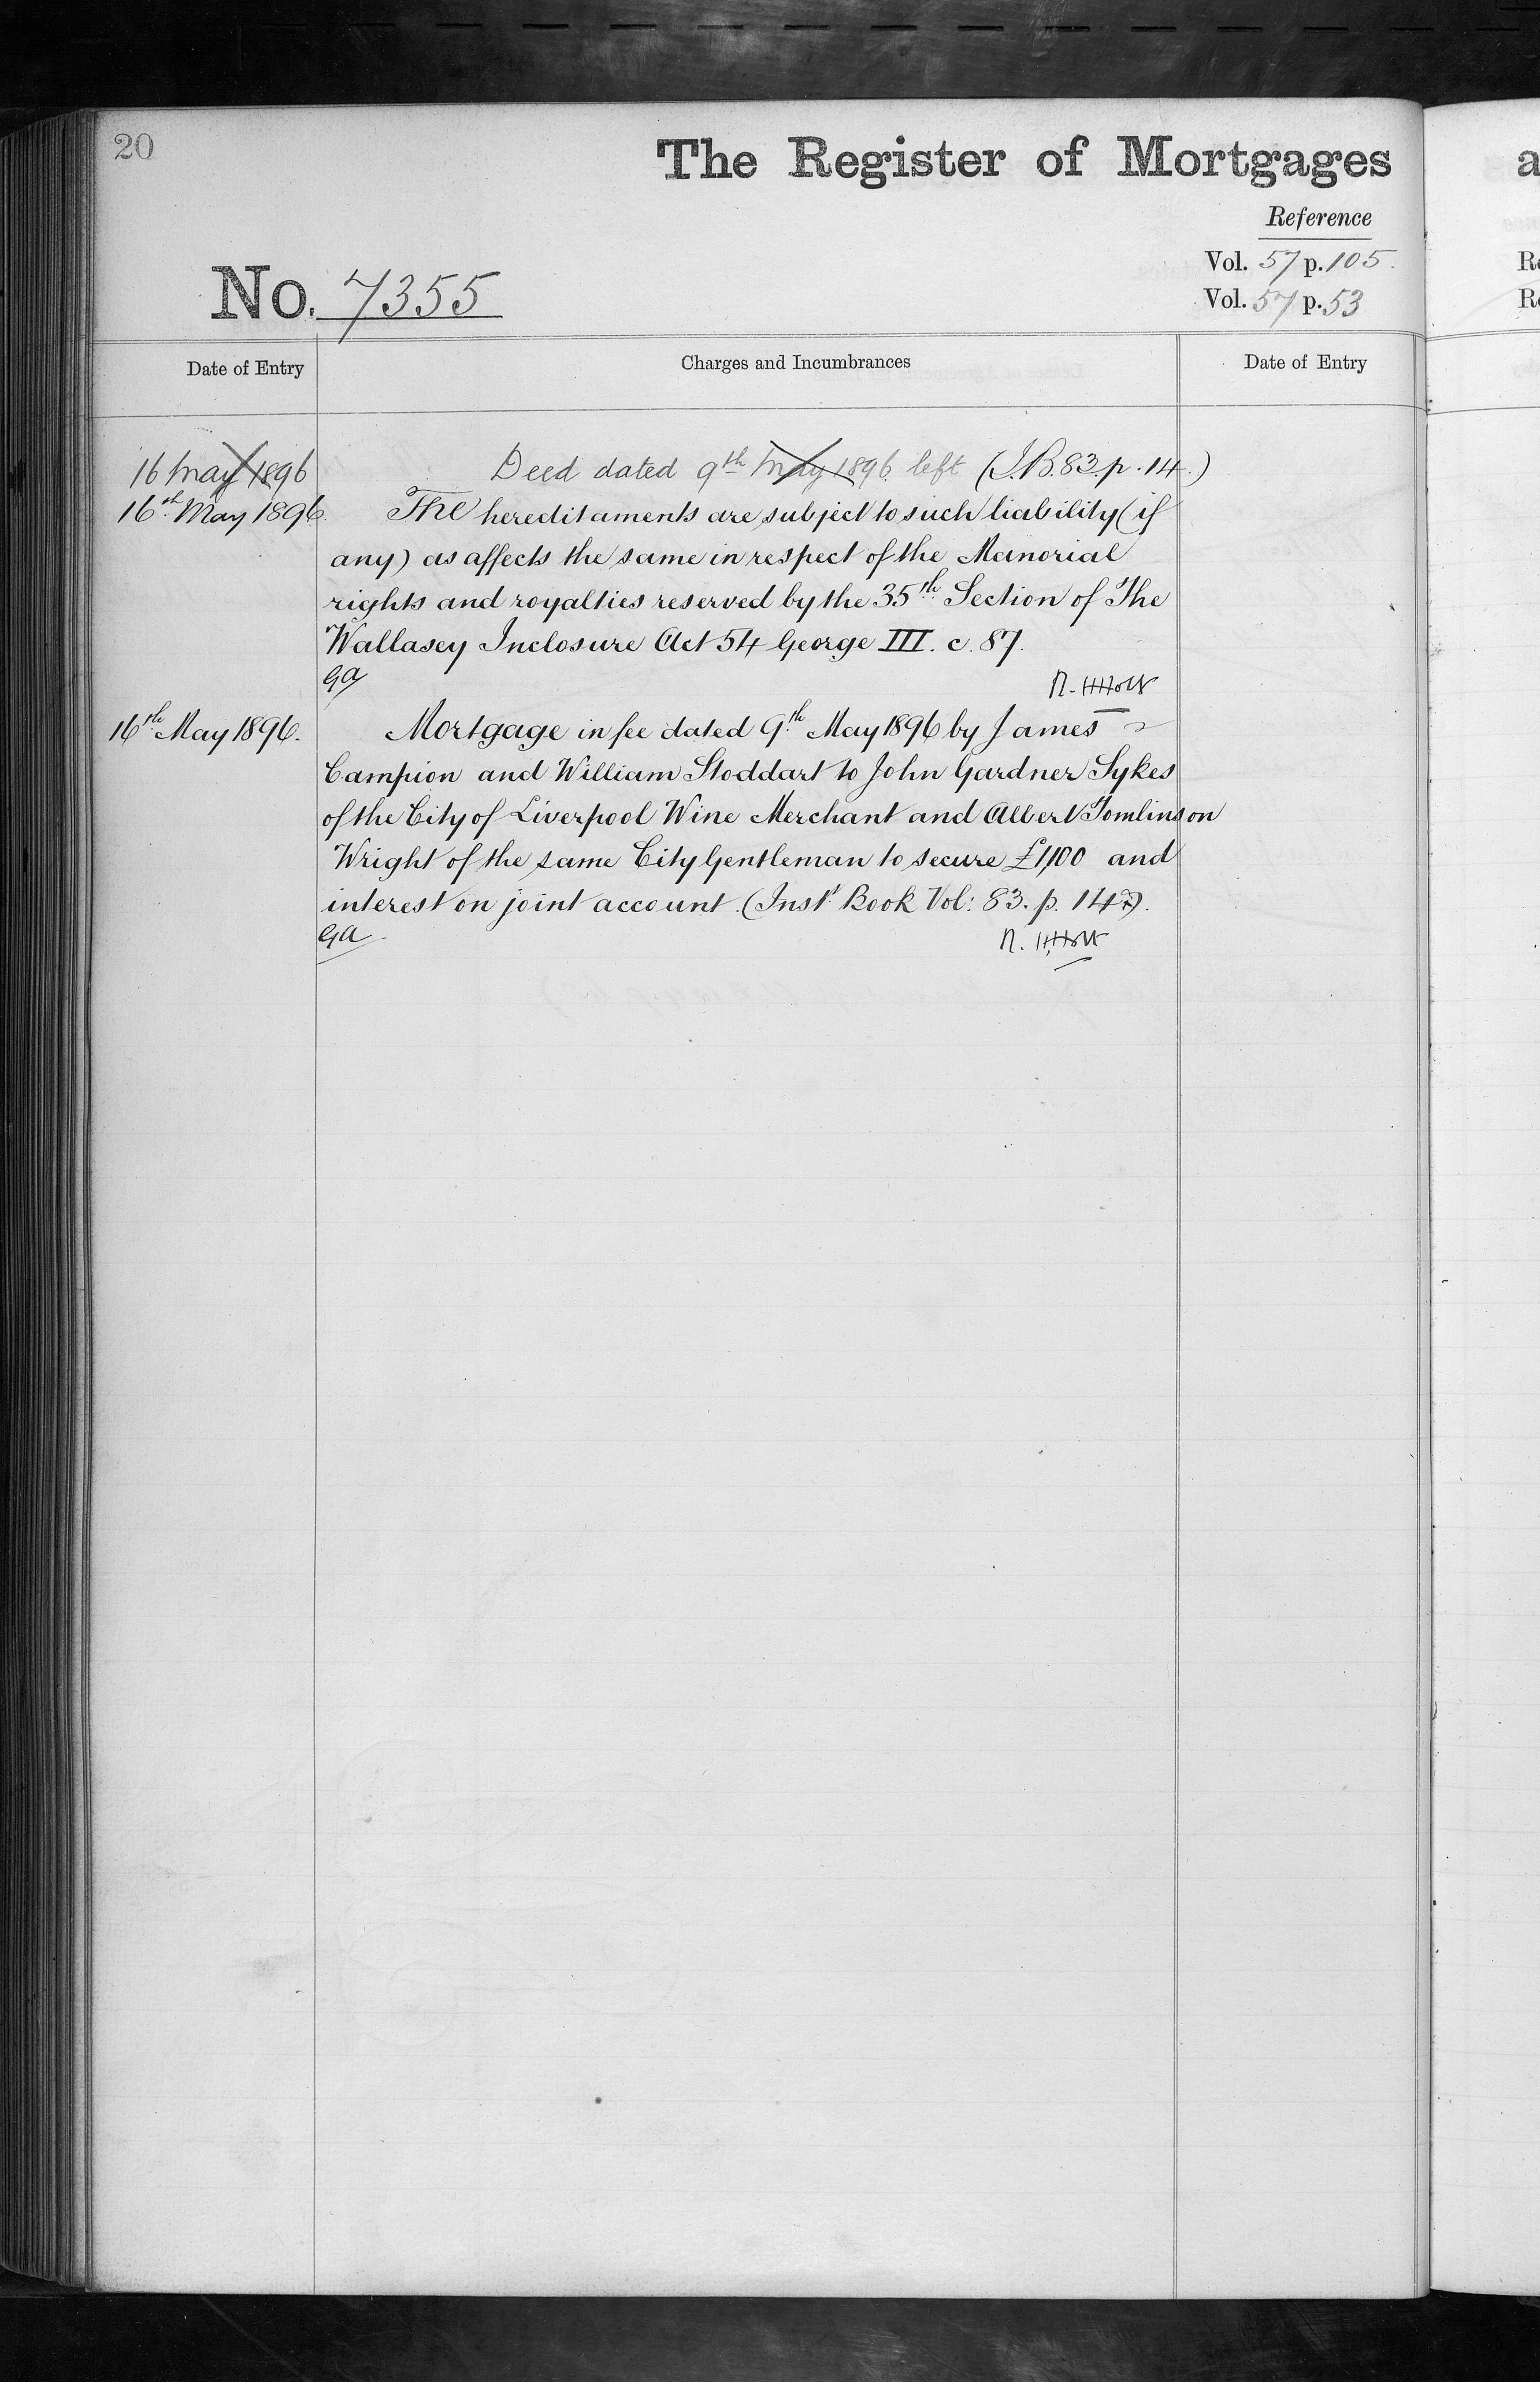 20
The Register of Mortgages
Reference
Vol. 57 p. 105.
No. 7355
Vol. 57 p. 53
Date of Entry
Charges and Incumbrances
Date of Entry
16 May 1896
Deed dated 9th May 1896 left (I.B. 83. p. 14.)
16th May 1896.
The hereditaments are subject to such liability (if
any) as affects the same in respect of the Manorial
rights and royalties reserved by the 35th Section of The
Wallasey Inclosure Act 54 George III. c. 87.
GA
16th May 1896.
Mortgage in fee dated 9th May 1896 by James
Campion and William Stoddart to John Gardner Sykes
of the City of Liverpool Wine Merchant and Albert Tomlinson
Wright of the same City Gentleman to secure £1,100 and
interest on joint account. (Inst. Book Vol: 83. p. 14).
GA
a